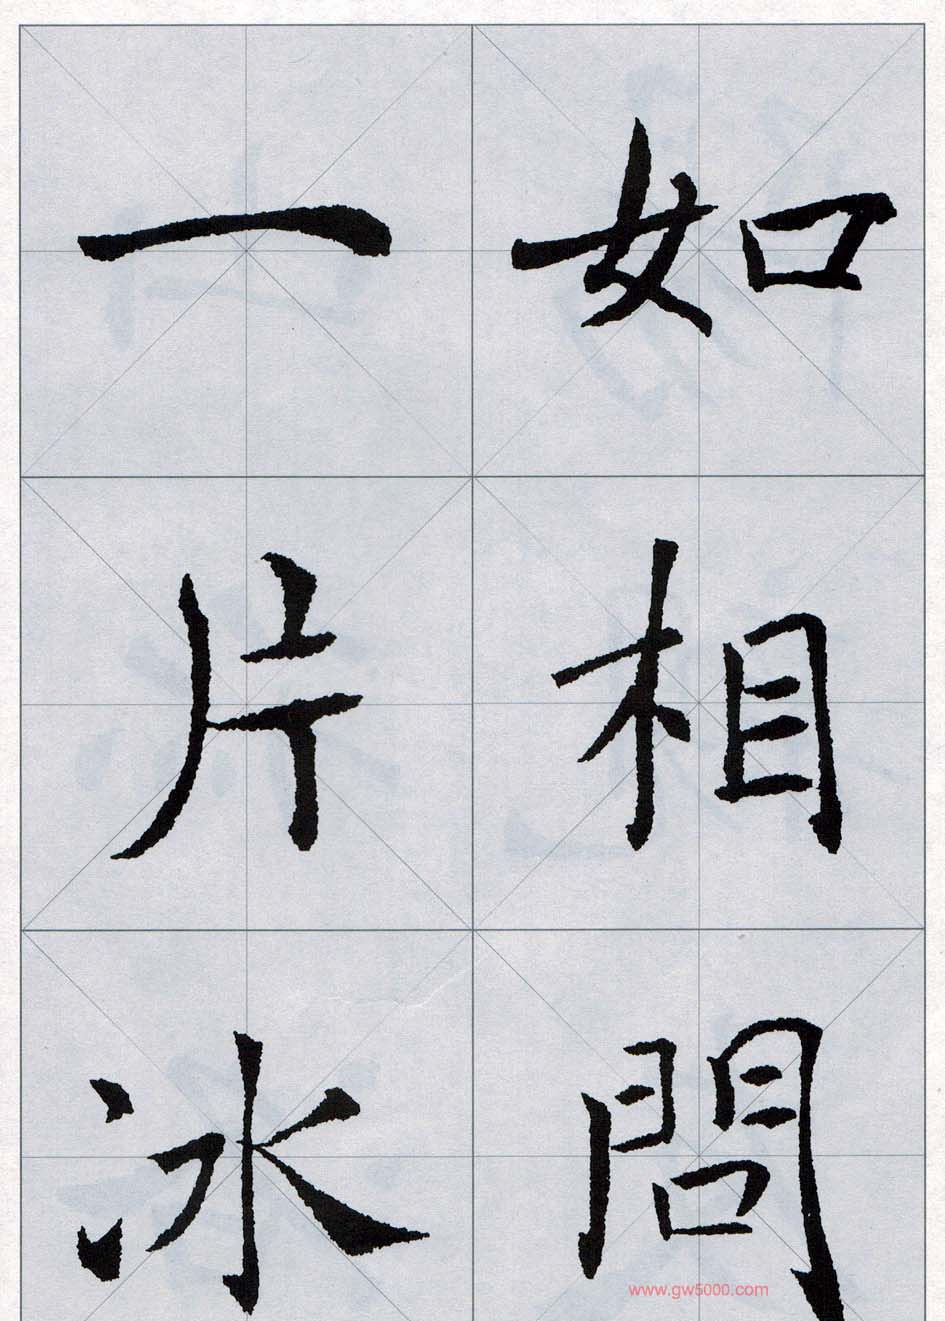 如相問
一片冰
www.gw5000.com